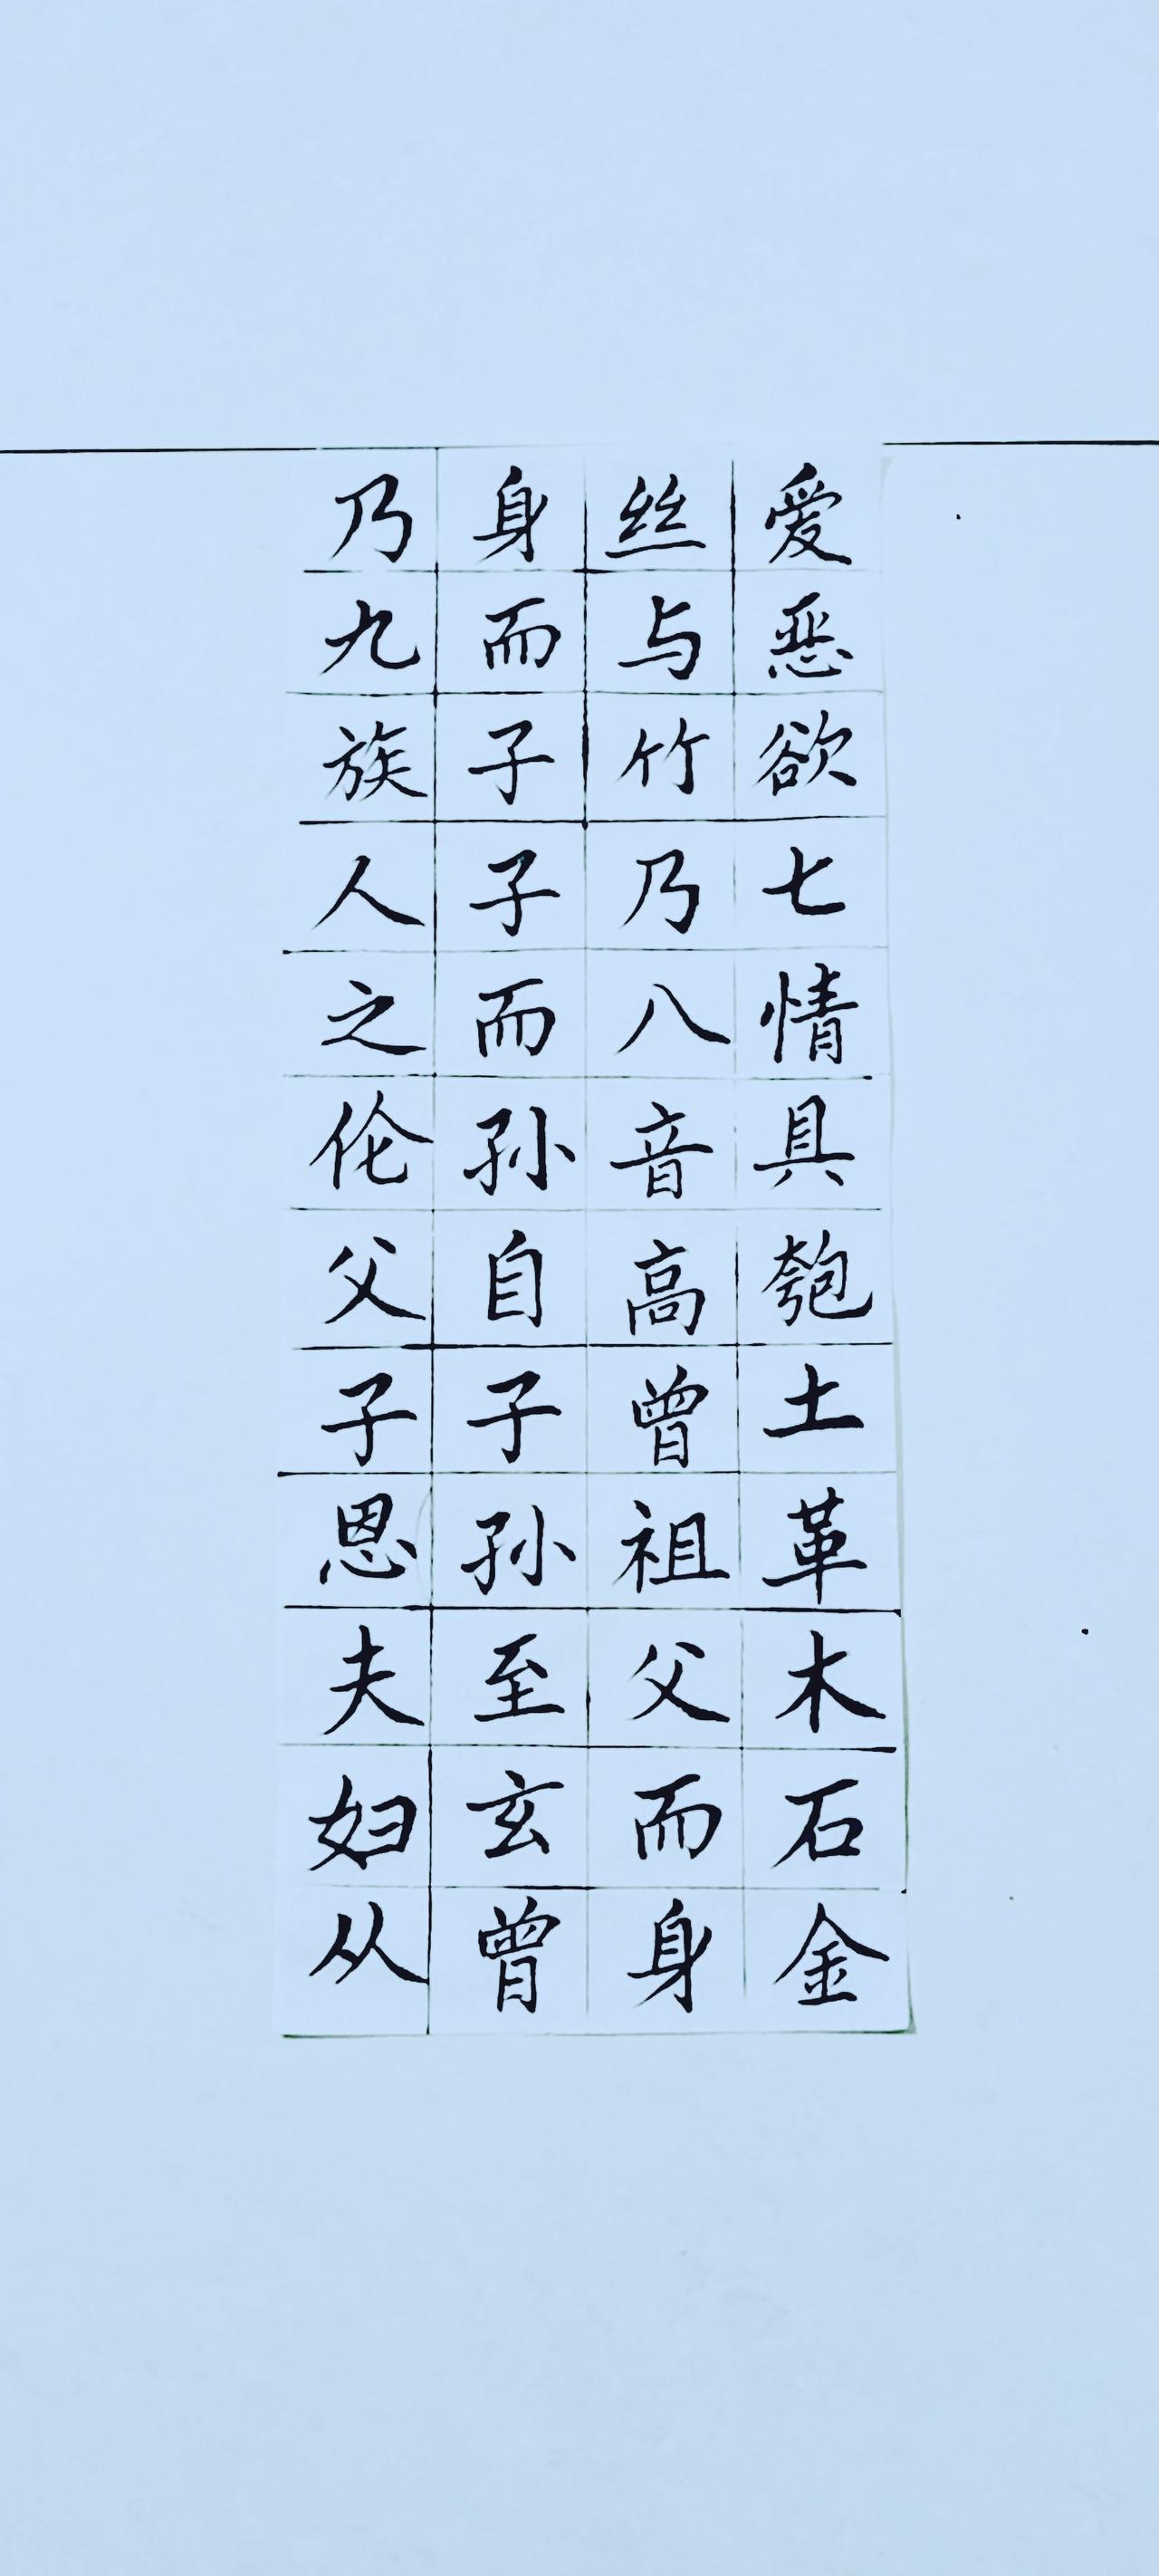 爱恶欲七情具匏土革木石金
丝与竹乃八音高曾祖父而身
身而子子而孙自子孙至玄曾
乃九族人之伦父子恩夫妇从